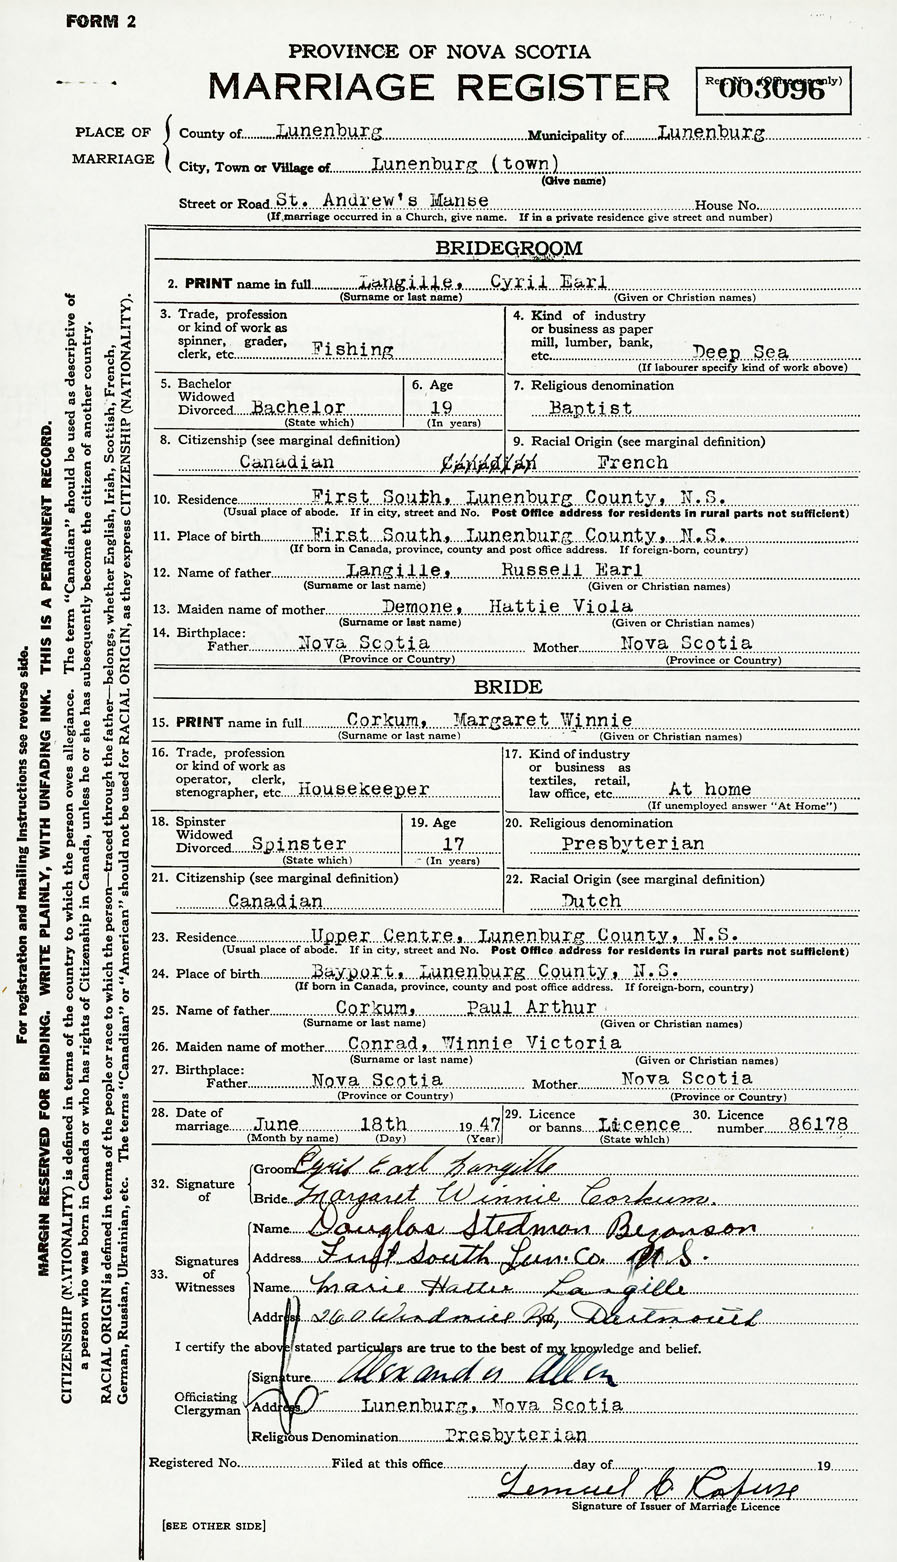 FORM 2
PROVINCE OF NOVA SCOTIA
MARRIAGE REGISTER
Reg. No. (Office use only)
003096
PLACE OF MARRIAGE
County of Lunenburg Municipality of Lunenburg
City, Town or Village of Lunenburg (town)
(Give name)
Street or Road St. Andrew's Manse House No.
(If marriage occurred in a Church, give name. If in a private residence give street and number)
BRIDEGROOM
2. PRINT name in full Langille, Cyril Earl
(Surname or last name) (Given or Christian names)
3. Trade, profession
or kind of work as
spinner, grader,
clerk, etc. Fishing
4. Kind of industry
or business as paper
mill, lumber, bank,
etc. Deep Sea
(If labourer specify kind of work above)
5. Bachelor
Widowed
Divorced Bachelor
(State which)
6. Age
19
(In years)
7. Religious denomination
Baptist
8. Citizenship (see marginal definition)
Canadian
9. Racial Origin (see marginal definition)
Canadian French
10. Residence First South, Lunenburg County, N.S.
(Usual place of abode. If in city, street and No. Post Office address for residents in rural parts not sufficient)
11. Place of birth First South, Lunenburg County, N.S.
(If born in Canada, province, county and post office address. If foreign-born, country)
12. Name of father Langille, Russell Earl
(Surname or last name) (Given or Christian names)
13. Maiden name of mother Demone, Hattie Viola
(Surname or last name) (Given or Christian names)
14. Birthplace:
Father Nova Scotia Mother Nova Scotia
(Province or Country) (Province or Country)
BRIDE
15. PRINT name in full Corkum, Margaret Winnie
(Surname or last name) (Given or Christian names)
16. Trade, profession
or kind of work as
operator, clerk,
stenographer, etc. Housekeeper
17. Kind of industry
or business as
textiles, retail,
law office, etc. At home
(If unemployed answer "At Home")
18. Spinster
Widowed
Divorced Spinster
(State which)
19. Age
17
(In years)
20. Religious denomination
Presbyterian
21. Citizenship (see marginal definition)
Canadian
22. Racial Origin (see marginal definition)
Dutch
23. Residence Upper Centre, Lunenburg County, N.S.
(Usual place of abode. If in city, street and No. Post Office address for residents in rural parts not sufficient)
24. Place of birth Bayport, Lunenburg County, N.S.
(If born in Canada, province, county and post office address. If foreign-born, country)
25. Name of father Corkum, Paul Arthur
(Surname or last name) (Given or Christian names)
26. Maiden name of mother Conrad, Winnie Victoria
(Surname or last name) (Given or Christian names)
27. Birthplace:
Father Nova Scotia Mother Nova Scotia
(Province or Country) (Province or Country)
28. Date of
marriage June 18th 1947
(Month by name) (Day) (Year)
29. Licence
or banns Licence
(State which)
30. Licence
number 86178
32. Signature of
Groom Cyril Earl Langille
Bride Margaret Winnie Corkum.
33. Signatures of Witnesses
Name Douglas Stedman Bezanson
Address First South Lun. Co. N.S.
Name Marie Hattie Langille
Address 260 Windmill Rd, Dartmouth
I certify the above stated particulars are true to the best of my knowledge and belief.
Officiating Clergyman
Signature Alexander Allen
Address Lunenburg, Nova Scotia
Religious Denomination Presbyterian
Registered No. Filed at this office day of 19
Lemuel C Rafuse
Signature of Issuer of Marriage Licence
[SEE OTHER SIDE]
For registration and mailing instructions see reverse side.
MARGIN RESERVED FOR BINDING. WRITE PLAINLY, WITH UNFADING INK. THIS IS A PERMANENT RECORD.
CITIZENSHIP (NATIONALITY) is defined in terms of the country to which the person owes allegiance. The term "Canadian" should be used as descriptive of
a person who was born in Canada or who has rights of Citizenship in Canada, unless he or she has subsequently become the citizen of another country.
RACIAL ORIGIN is defined in terms of the people or race to which the person—traced through the father—belongs, whether English, Irish, Scottish, French,
German, Russian, Ukrainian, etc. The terms "Canadian" or "American" should not be used for RACIAL ORIGIN, as they express CITIZENSHIP (NATIONALITY).